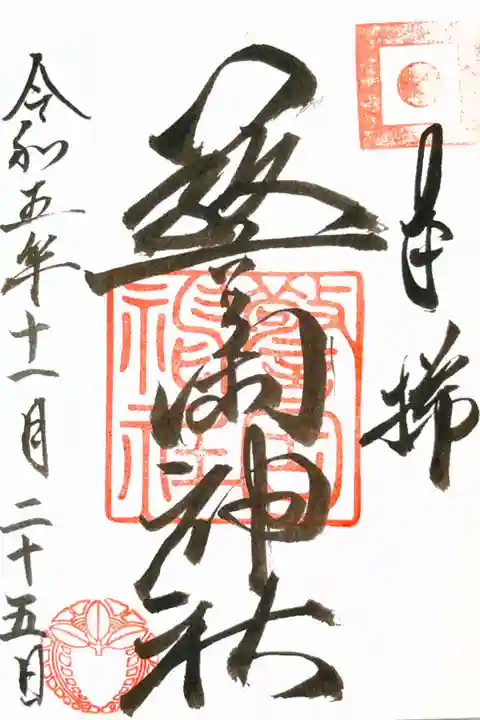 奉拝
警固神社
令和五年十一月二十五日
警固神社